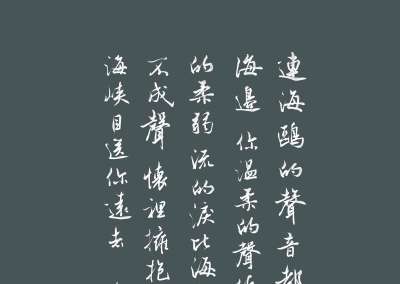 連海鷗的聲音都
海邊 你溫柔的聲
的柔弱 流的淚比海
不成聲 懷裡擁抱
海峽目送你遠去